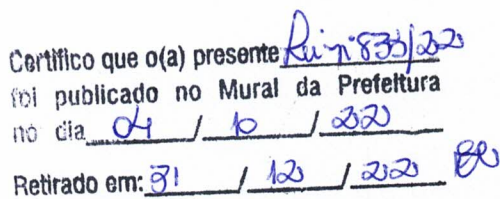 Certifico que o(a) presente Lei nº 833/22
foi publicado no Mural da Prefeitura
no dia 04 / 10 / 22
Retirado em: 31 / 12 / 22